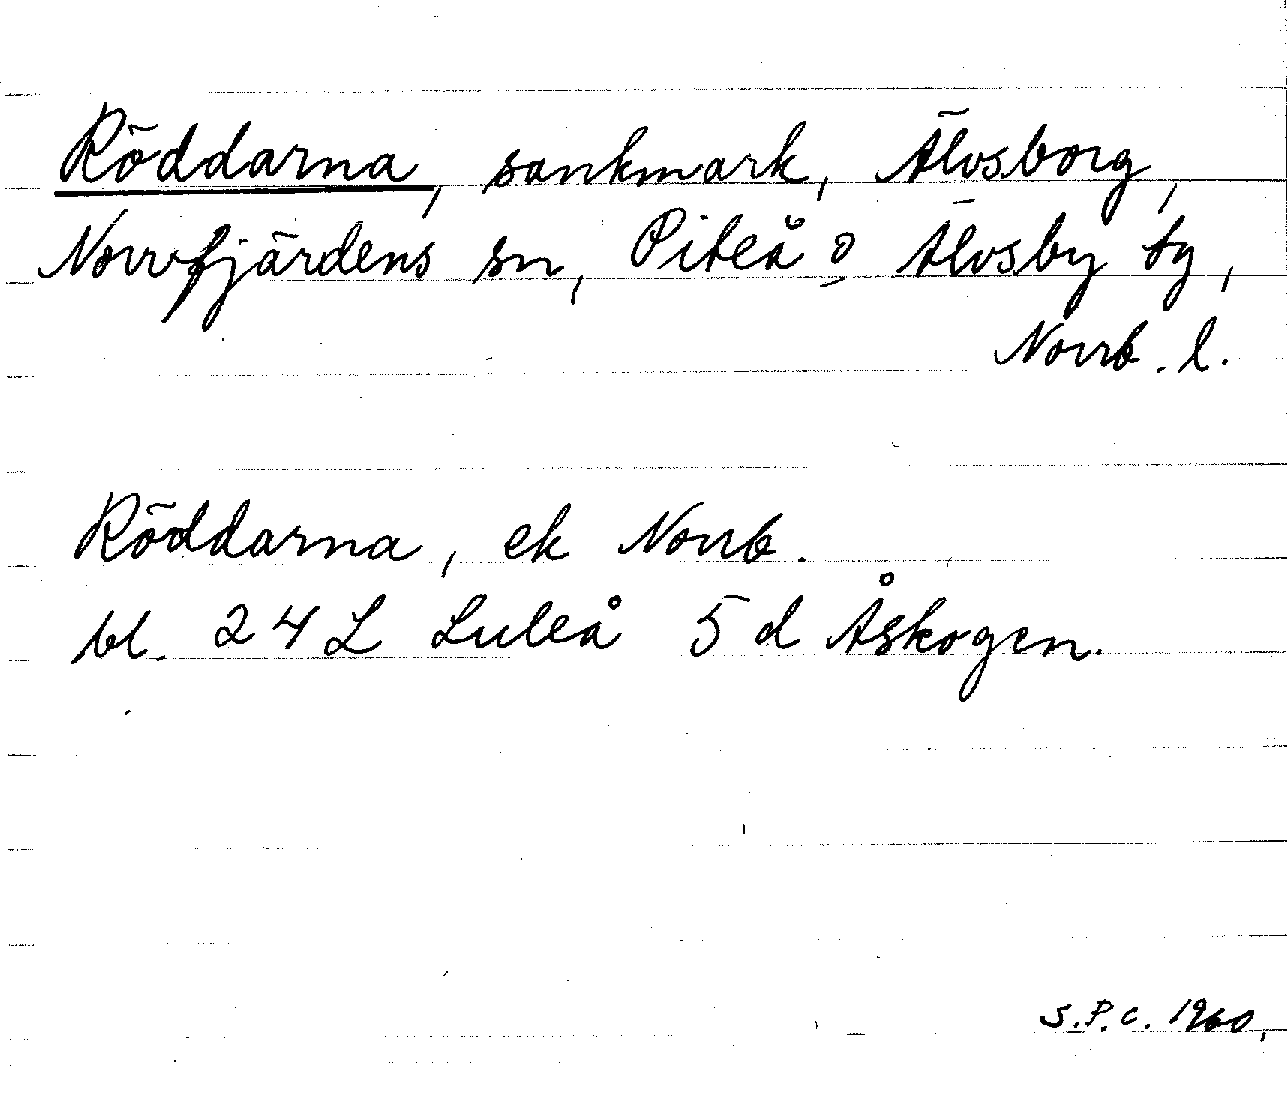 Röddarna, sankmark, Älvsborg,
Norrfjärdens sn, Piteå o Älvsby tg,
Norrb. l.
Röddarna, ek Norrb.
bl. 24 L Luleå 5 d Åskogen.
S.P.C. 1960.